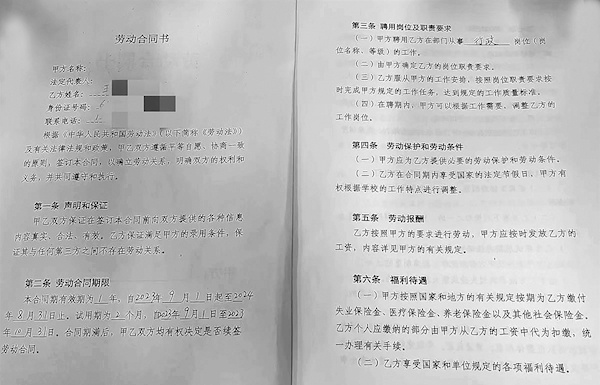 劳动合同书
甲方名称：
法定代表人：
乙方姓名：
身份证号码：
联系电话：
根据《中华人民共和国劳动法》（以下简称《劳动法》）
及有关法律法规和政策，甲乙双方遵循平等自愿、协商一致
的原则，签订本合同，以确立劳动关系，明确双方的权利和
义务，并共同遵守和执行。
第一条 声明和保证
甲乙双方保证在签订本合同前向双方提供的各种信息
内容真实、合法、有效。乙方保证满足甲方的录用条件，保
证其与任何第三方之间不存在劳动关系。
第二条 劳动合同期限
本合同期有效期为1年，自2023年9月1日起至2024
年8月31日止。试用期为2个月，自2023年9月1日至2023
年10月31日。合同期满后，甲乙双方均有权决定是否续签
劳动合同。
第三条 聘用岗位及职责要求
（一）甲方聘用乙方在部门从事 行政 岗位（岗
位名称、等级）的工作。
（二）由甲方确定乙方的岗位职责要求。
（三）乙方服从甲方的工作安排，按照岗位职责要求按
时完成甲方规定的工作任务，达到规定的工作质量标准。
（四）在聘期内，甲方可以根据工作需要，调整乙方的
工作岗位。
第四条 劳动保护和劳动条件
（一）甲方应为乙方提供必要的劳动保护和劳动条件。
（二）乙方在合同期内享受国家的法定节假日，甲方有
权根据学校的工作特点进行调整。
第五条 劳动报酬
乙方按照甲方的要求进行劳动，甲方应按时发放乙方的
工资，内容详见甲方的有关规定。
第六条 福利待遇
（一）甲方按照国家和地方的有关规定按期为乙方缴付
失业保险金、医疗保险金、养老保险金以及其他社会保险金。
乙方个人应缴纳的部分由甲方从乙方的工资中代为扣缴，统
一办理有关手续。
（二）乙方享受国家和单位规定的各项福利待遇。